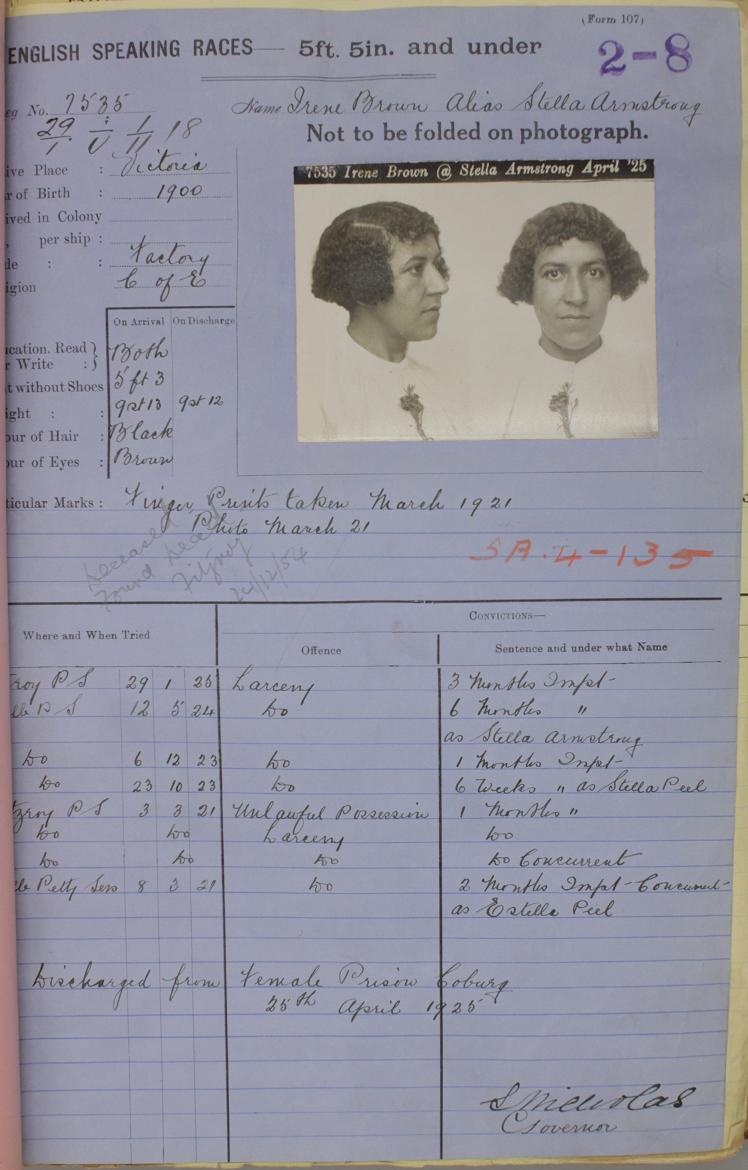 (Form 107)
ENGLISH SPEAKING RACES— 5ft. 5in. and under
2-8
eg No. 7535
Name Irene Brown Alias Stella Armstrong
29 i 1 18
1 U 11
Not to be folded on photograph.
ive Place : Victoria
7535 Irene Brown @ Stella Armstrong April '25
r of Birth : 1900
ived in Colony
per ship :
de : : Factory
igion C of E
On Arrival On Discharge
ucation. Read }
r Write : } Both
t without Shoes 5 ft 3
ight : : 9st 13 9st 12
our of Hair : Black
our of Eyes : Brown
ticular Marks : Finger Prints taken March 1921
Photo March 21
Deceased
Found Dead
Fitzroy
24/12/54
SA.4-135
CONVICTIONS—
Where and When Tried Offence Sentence and under what Name
roy P S 29 1 25 Larceny 3 Months Impt-
lb P S 12 5 24 Do 6 Months "
as Stella Armstrong
Do 6 12 23 Do 1 Months Impt-
Do 23 10 23 Do 6 Weeks " as Stella Peel
tzroy P S 3 3 21 Unlawful Possession 1 Months "
Do Do Larceny Do
Do Do Do Do Concurrent
lb Petty Sess 8 3 21 Do 2 Months Impt- Concurrent-
as Estella Peel
Discharged from Female Prison Coburg
25th April 1925
S Nicholas
Governor